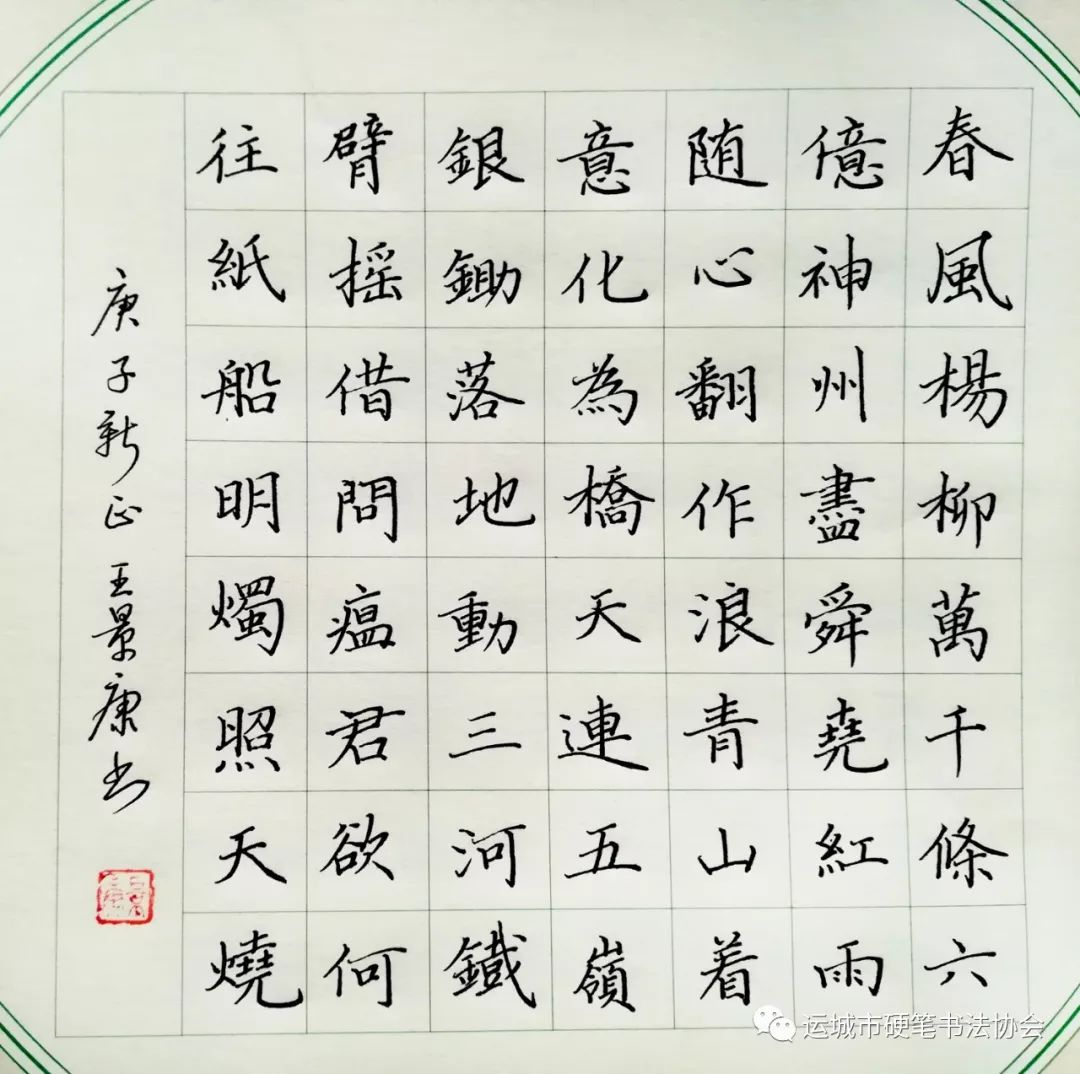 春風楊柳萬千條六
億神州盡舜堯紅雨
随心翻作浪青山着
意化為橋天連五嶺
銀鋤落地動三河鐵
臂摇借問瘟君欲何
往紙船明燭照天燒
庚子新正王景康书
运城市硬笔书法协会